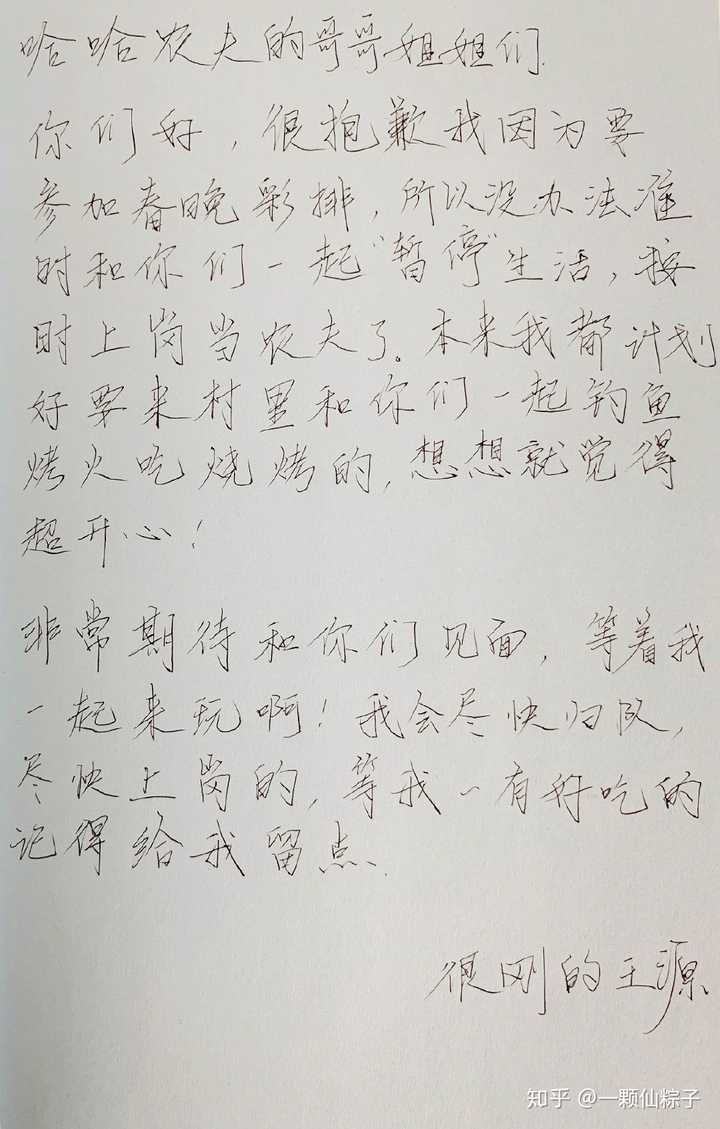 哈哈农夫的哥哥姐姐们.
你们好，很抱歉我因为要
参加春晚彩排，所以没办法准
时和你们一起“暂停”生活，按
时上岗当农夫了。本来我都计划
好要来村里和你们一起钓鱼
烤火吃烧烤的，想想就觉得
超开心！
非常期待和你们见面，等着我
一起来玩啊！我会尽快归队，
尽快上岗的，等我~有好吃的
记得给我留点.
很刚的王源
知乎 @一颗仙粽子